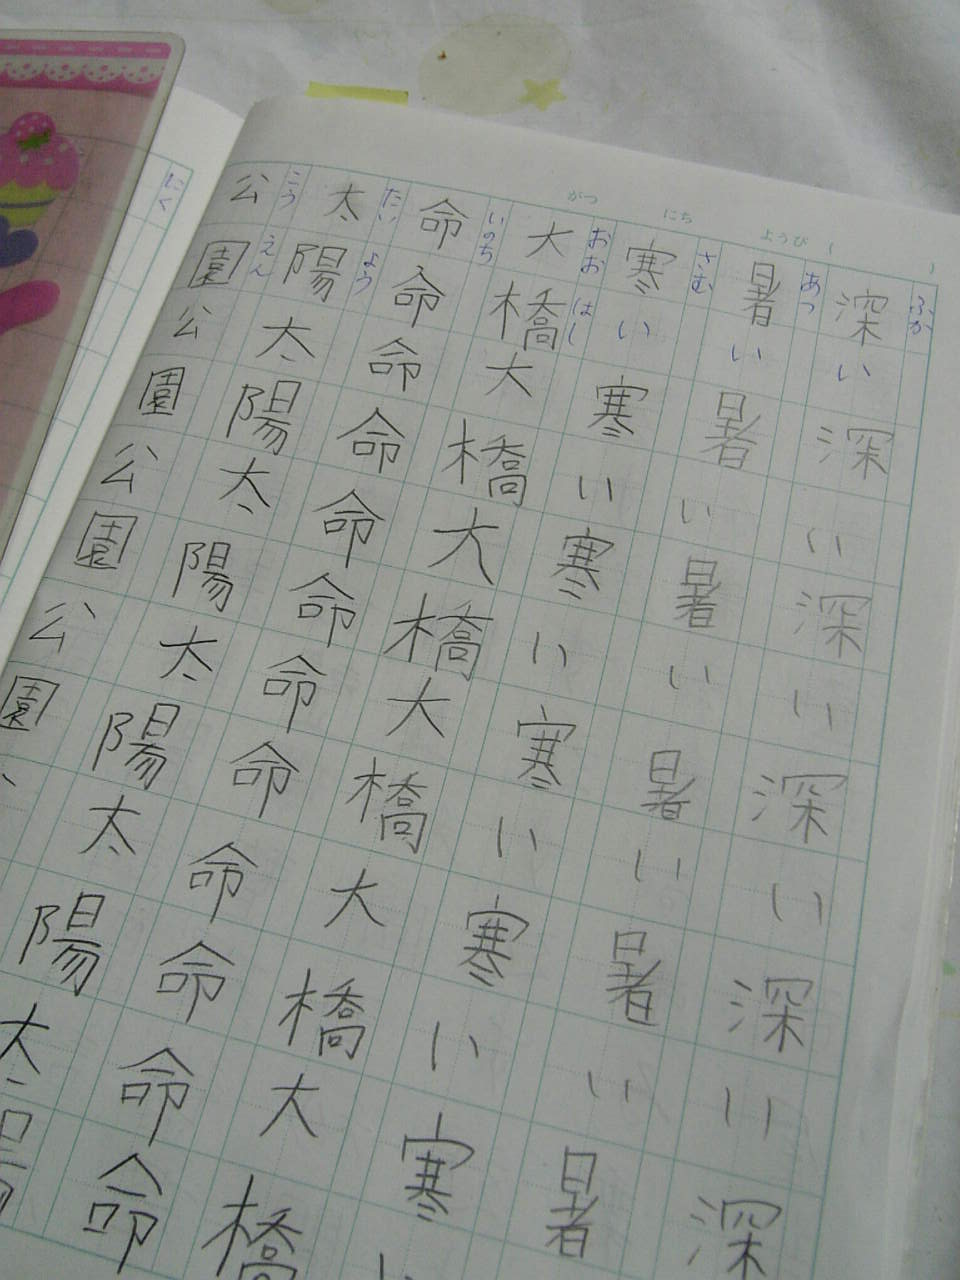 がつ にち ようび ( )
ふか
深い深い深い深い深い深
あつ
暑い暑い暑い暑い暑い暑
さむ
寒い寒い寒い寒い寒い寒い
おおはし
大橋大橋大橋大橋大橋大橋
いのち
命命命命命命命命命命命命
たいよう
太陽太陽太陽太陽太陽太陽
こうえん
公園公園公園公園
にく